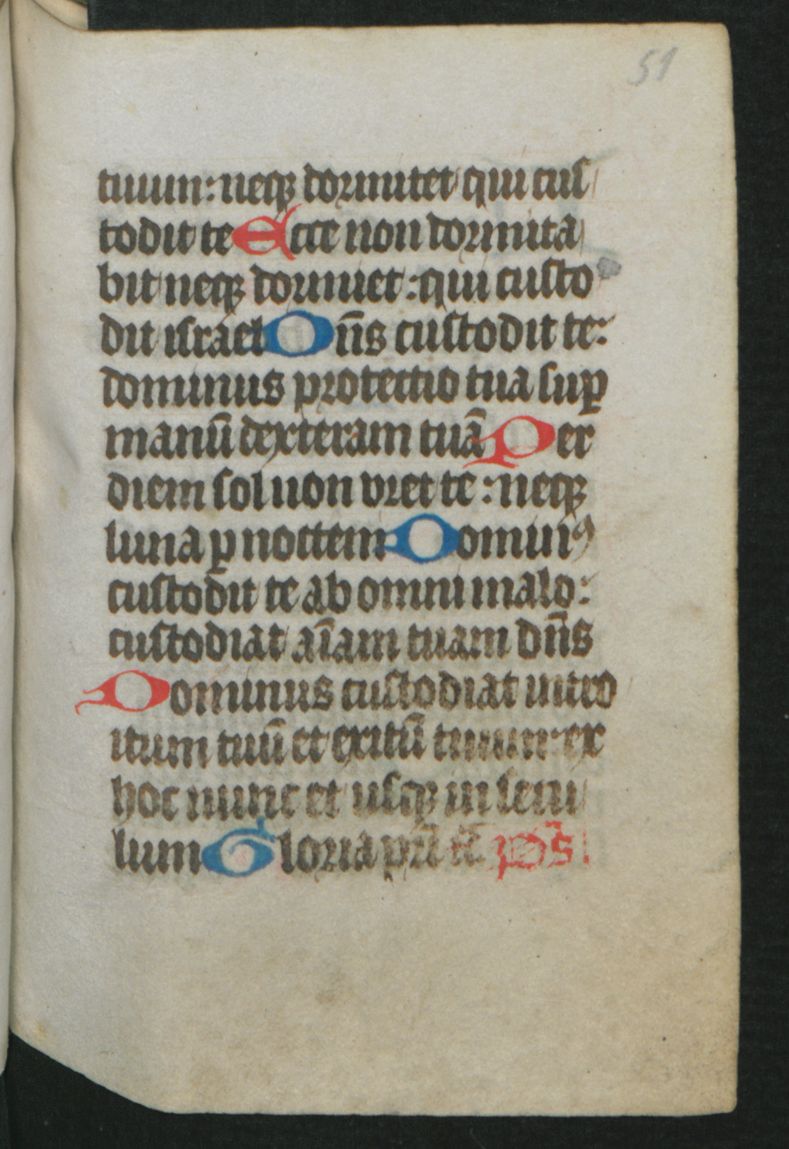 51
tuum: neqꝫ dormitet qui cus
todit te Ecce non dormita
bit neqꝫ dormiet: qui custo
dit israel Dn̄s custodit te:
dominus protectio tua suꝑ
manū dexteram tuā Per
diem sol non vret te: neqꝫ
luna ꝑ noctem Dominꝰ
custodit te ab omni malo:
custodiat aīam tuam dn̄s
Dominus custodiat intro
itum tuū et exitū tuum: ex
hoc nunc et usqꝫ in secu
lum Gloria pr̄i ⁊c̄ p̄s